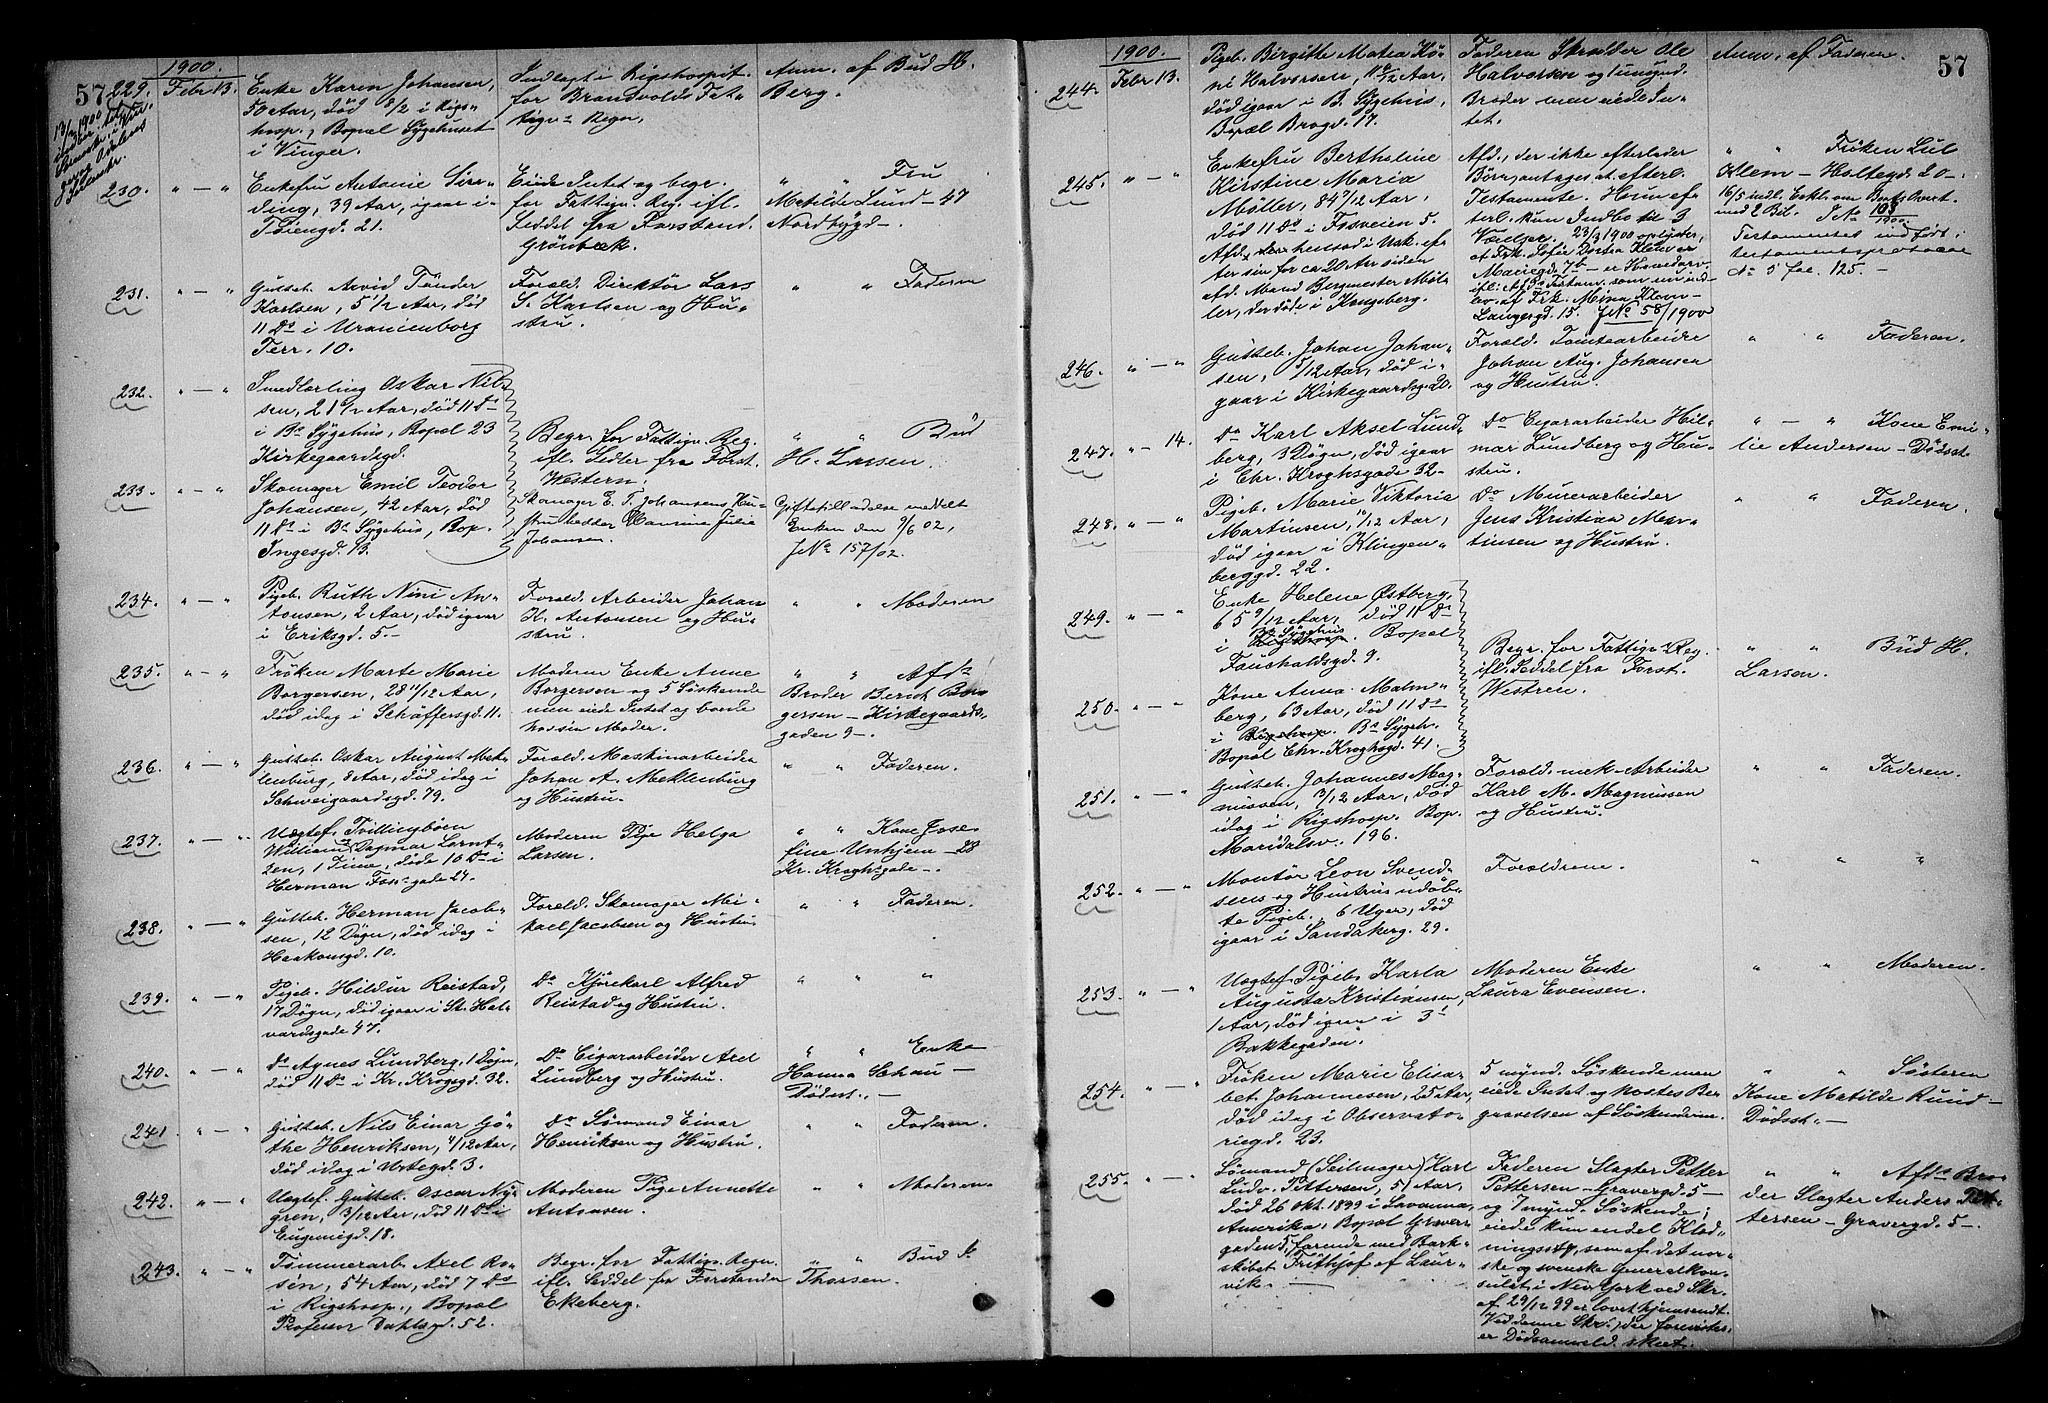 57
1900.
229.
Febr 13.
Enke Karin Johansen,
50 Aar, død 8/2 i Rigs-
hosp., Bopæl Sygehuset
i Vinger.
Indlagt i Rigshospit.
for Brandvolds Fat-
tign. Regn.
Anm. af Bud H.
Berg.
230.
" — "
Enkefru Antonie Sire-
ding, 39 Aar, igaar i
Tøiengd. 21.
Eiede Intet og begr.
for Fattign. Rg. ifl.
Seddel fra Forstand.
Grönbæk.
" " Fru
Matilde Lund — 47
Nordbygd —.
231.
" — "
Gutteb. Arvid Tønder
Karlsen, 5 1/2 Aar, død
11 Ds i Uranienborg
Terr. 10.
Foræld. Direktør Lars
S. Karlsen og Hu-
stru.
" " Faderen
232.
" — "
Smedlærling Oskar Nil-
sen, 21 1/2 Aar, død 11 Ds
i Bs Sygehus, Bopæl 23
Kirkegaardsgd.
Begr. for Fattign. Reg.
ifl. Sedler fra Forst.
Western.
" " Bud
H. Larsen.
233.
" — "
Skomager Emil Teodor
Johansen, 42 Aar, død
11 Ds i Bs Sygehus, Bop.
Ingesgd. 13.
Skomager E. T. Johansens Hu-
stru hedder Hansine Julie
Johansen.
Giftetilladelse meddelt
Enken den 9/6 02,
JNo 157/02.
234.
" — "
Pigeb. Ruth Nini An-
tonsen, 2 Aar, død igaar
i Eriksgd. 5.—
Foræld. Arbeider Johan
K. Antonsen og Hu-
stru.
" " Moderen
235.
" — "
Frøken Marte Marie
Borgersen, 28 11/12 Aar,
død idag i Schäffersgd. 11.
Moderen Enke Anne
Borgersen og 5 Søskende
men eiede Intet og boede
hos sin Moder.
" " Afds
Broder Bernt Bor-
gersen — Kirkegaards-
gaden 9 —.
236.
" — "
Gutteb. Oskar August Mek-
lenburg, 8 Aar, død idag i
Schweigaardsgd. 79.
Foræld. Maskinarbeider
Johan A. Meklenburg
og Hustru.
" " Faderen.
237.
" — "
Uægtef. Tvillingbørn
William & Dagmar Lornt-
zen, 1 Time, døde 10 Ds i
Herman Foss' gade 24.
Moderen Pige Helga
Larsen.
" " Kone Jose-
fine Unhjem — 28
Kr. Kroghs gade —.
238.
" — "
Gutteb. Herman Jacob-
sen, 12 Døgn, død idag i
Haakonsgd. 10.
Foræld. Skomager Mi-
kael Jacobsen og Hustru
" " Faderen.
239.
" — "
Pigeb. Hildur Reistad,
17 Døgn, død igaar i St. Hal-
vardsgade 47.
Do Kjørekarl Alfred
Reistad og Hustru.
" " "
240.
" — "
Do Agnes Lundberg, 1 Døgn,
død 11 Ds i Kr. Krogsgd. 32.
Do Cigararbeider Axel
Lundberg og Hustru.
" " Enke
Hanna Schau —
Dødsst. —
241.
" — "
Gutteb. Nils Einar Gö-
the Henriksen, 4/12 Aar,
død idag i Urtegd. 3.
Do Sømand Einar
Henriksen og Hustru.
" " Faderen.
242.
" — "
Uægtef. Gutteb. Oscar Ny-
gren, 3/12 Aar, død 11 Ds i
Eugeniegd. 18.
Moderen Pige Annette
Antonsen.
" " Moderen.
243.
" — "
Tømmerarb. Axel Ro-
sén, 54 Aar, død 7 Ds
i Rigshosp., Bopæl
Professor Dahlsgd. 52.
Begr. for Fattign. Regn.
ifl. Seddel fra Forstander
Ekeberg.
" " Bud K.
Thorsen.
57
1900.
244.
Febr 13.
Pigeb. Birgitte Matea Ka-
ri Halvorsen, Aar,
død igaar i B. Sygehus,
Bopæl Brogd. 17.
Faderen Skrædder Ole
Halvorsen og 1 umynd.
Broder men eiede In-
tet.
Anm. af Faderen.
245.
" — "
Enkefru Bertholine
Kirstine Maria
Møller, 84 7/12 Aar,
død 11 Ds i Fosveien 5.
Afd. der hensad i Usk. ef-
ter sin for ca 20 Aar siden
afd. Mand Bergmester Møl-
ler, der døde i Kongsberg.
Afd., der ikke efterlader
Børn, antages at efterl.
Testamente. Hun ef-
terl. kun Indbo til 3
Værelser. 23/3 1900 oplyster,
at Frk. Sofie Dortea Klem er
Mariegd. 7b — er Hovedarv.
ifl. Afds Testam. som nu indl.
lev. af Frk. Mina Klem —
Langesgd. 15. JNo 58/1900
" " Frøken Lul
Klem — Holtegd. 20 —
16/5 indl. Erkl. om Boets Overt.
med 2 Bil. JNo 103/1900.
Testamentet indført i
testamentsprotocol
No 5 fol. 125. —
246.
" — "
Gutteb. Johan Johan-
sen, 5/12 Aar, død i-
gaar i Kirkegaardsgd. 20.
Foræld. Tomtearbeider
Johan Aug. Johansen
og Hustru.
" " Faderen.
247.
" — 14.
Do Karl Aksel Lund-
berg, 3 Døgn, død igaar
i Chr. Kroghsgade 32.
Do Cigararbeider Hil-
mar Lundberg og Hu-
stru.
" — " Kone Emi-
lie Andersen — Dødsst.
248.
" — "
Pigeb. Marie Viktoria
Martinsen, 10/12 Aar,
død igaar i Klingen-
berggd. 22.
Do Murerarbeider
Jens Kristian Mar-
tinsen og Hustru.
" " Faderen.
249.
" — "
Enke Helene Østberg,
65 9/12 Aar, død 11 Ds
i Bs Sygehus. Bopæl
Fauchaldsgd. 9.
Begr. for Fattign. Reg.
ifl. Seddel fra Forst.
Westren.
" " Bud H.
Larsen.
250.
" — "
Kone Anna Malm-
berg, 63 Aar, død 11 Ds
i Rigshosp. Bs Sygeh.
Bopæl Chr. Kroghsgd. 41.
251.
" — "
Gutteb. Johannes Mag-
nussen, 3/12 Aar, død
idag i Rigshosp. Bop.
Maridalsv. 196.
Foræld. mek. Arbeider
Karl M. Magnussen
og Hustru.
" " Faderen.
252.
" — "
Montør Leon Svend-
sens og Hustrus udøb-
te Pigeb., 6 Uger, død
igaar i Sandakerg. 29.
Forældrene.
" " "
253.
" — "
Uægtef. Pigeb. Karla
Augusta Kristiansen,
1 Aar, død igaar i 3'
Bakkegaden.
Moderen Enke
Laura Evensen.
" " Moderen.
254.
" — "
Frøken Marie Elisa-
bet Johannesen, 25 Aar,
død idag i Observato-
riegd. 23.
5 mynd. Søskende men
eiede Intet og kostes Be-
gravelsen af Søskendene.
" " Søsteren
Kone Matilde Ruud —
Dødsst. —
255.
" — "
Sømand (Seilmager) Karl
Ludv. Pettersen, 51 Aar,
død 26 Okt. 1899 i Savanna,
Amerika, Bopæl Graver-
gaden 5, farende med Bark-
skibet Frithjof af Laur-
vik.
Faderen Slagter Petter
Pettersen — Gravergd. 5 —
og 7 mynd. Søskende;
eiede kun endel Klæd-
ningsstyk, som af det nor-
ske og svenske Generalkon-
sulat i New York ved Skr.
af 29/12 99 er lovet hjemsendt.
Ved denne Skr., der foreviste,
er Dødsanmeld. skeet.
" " Afds Bro-
der Slagter Anders Pet-
tersen — Gravergd. 5 —.